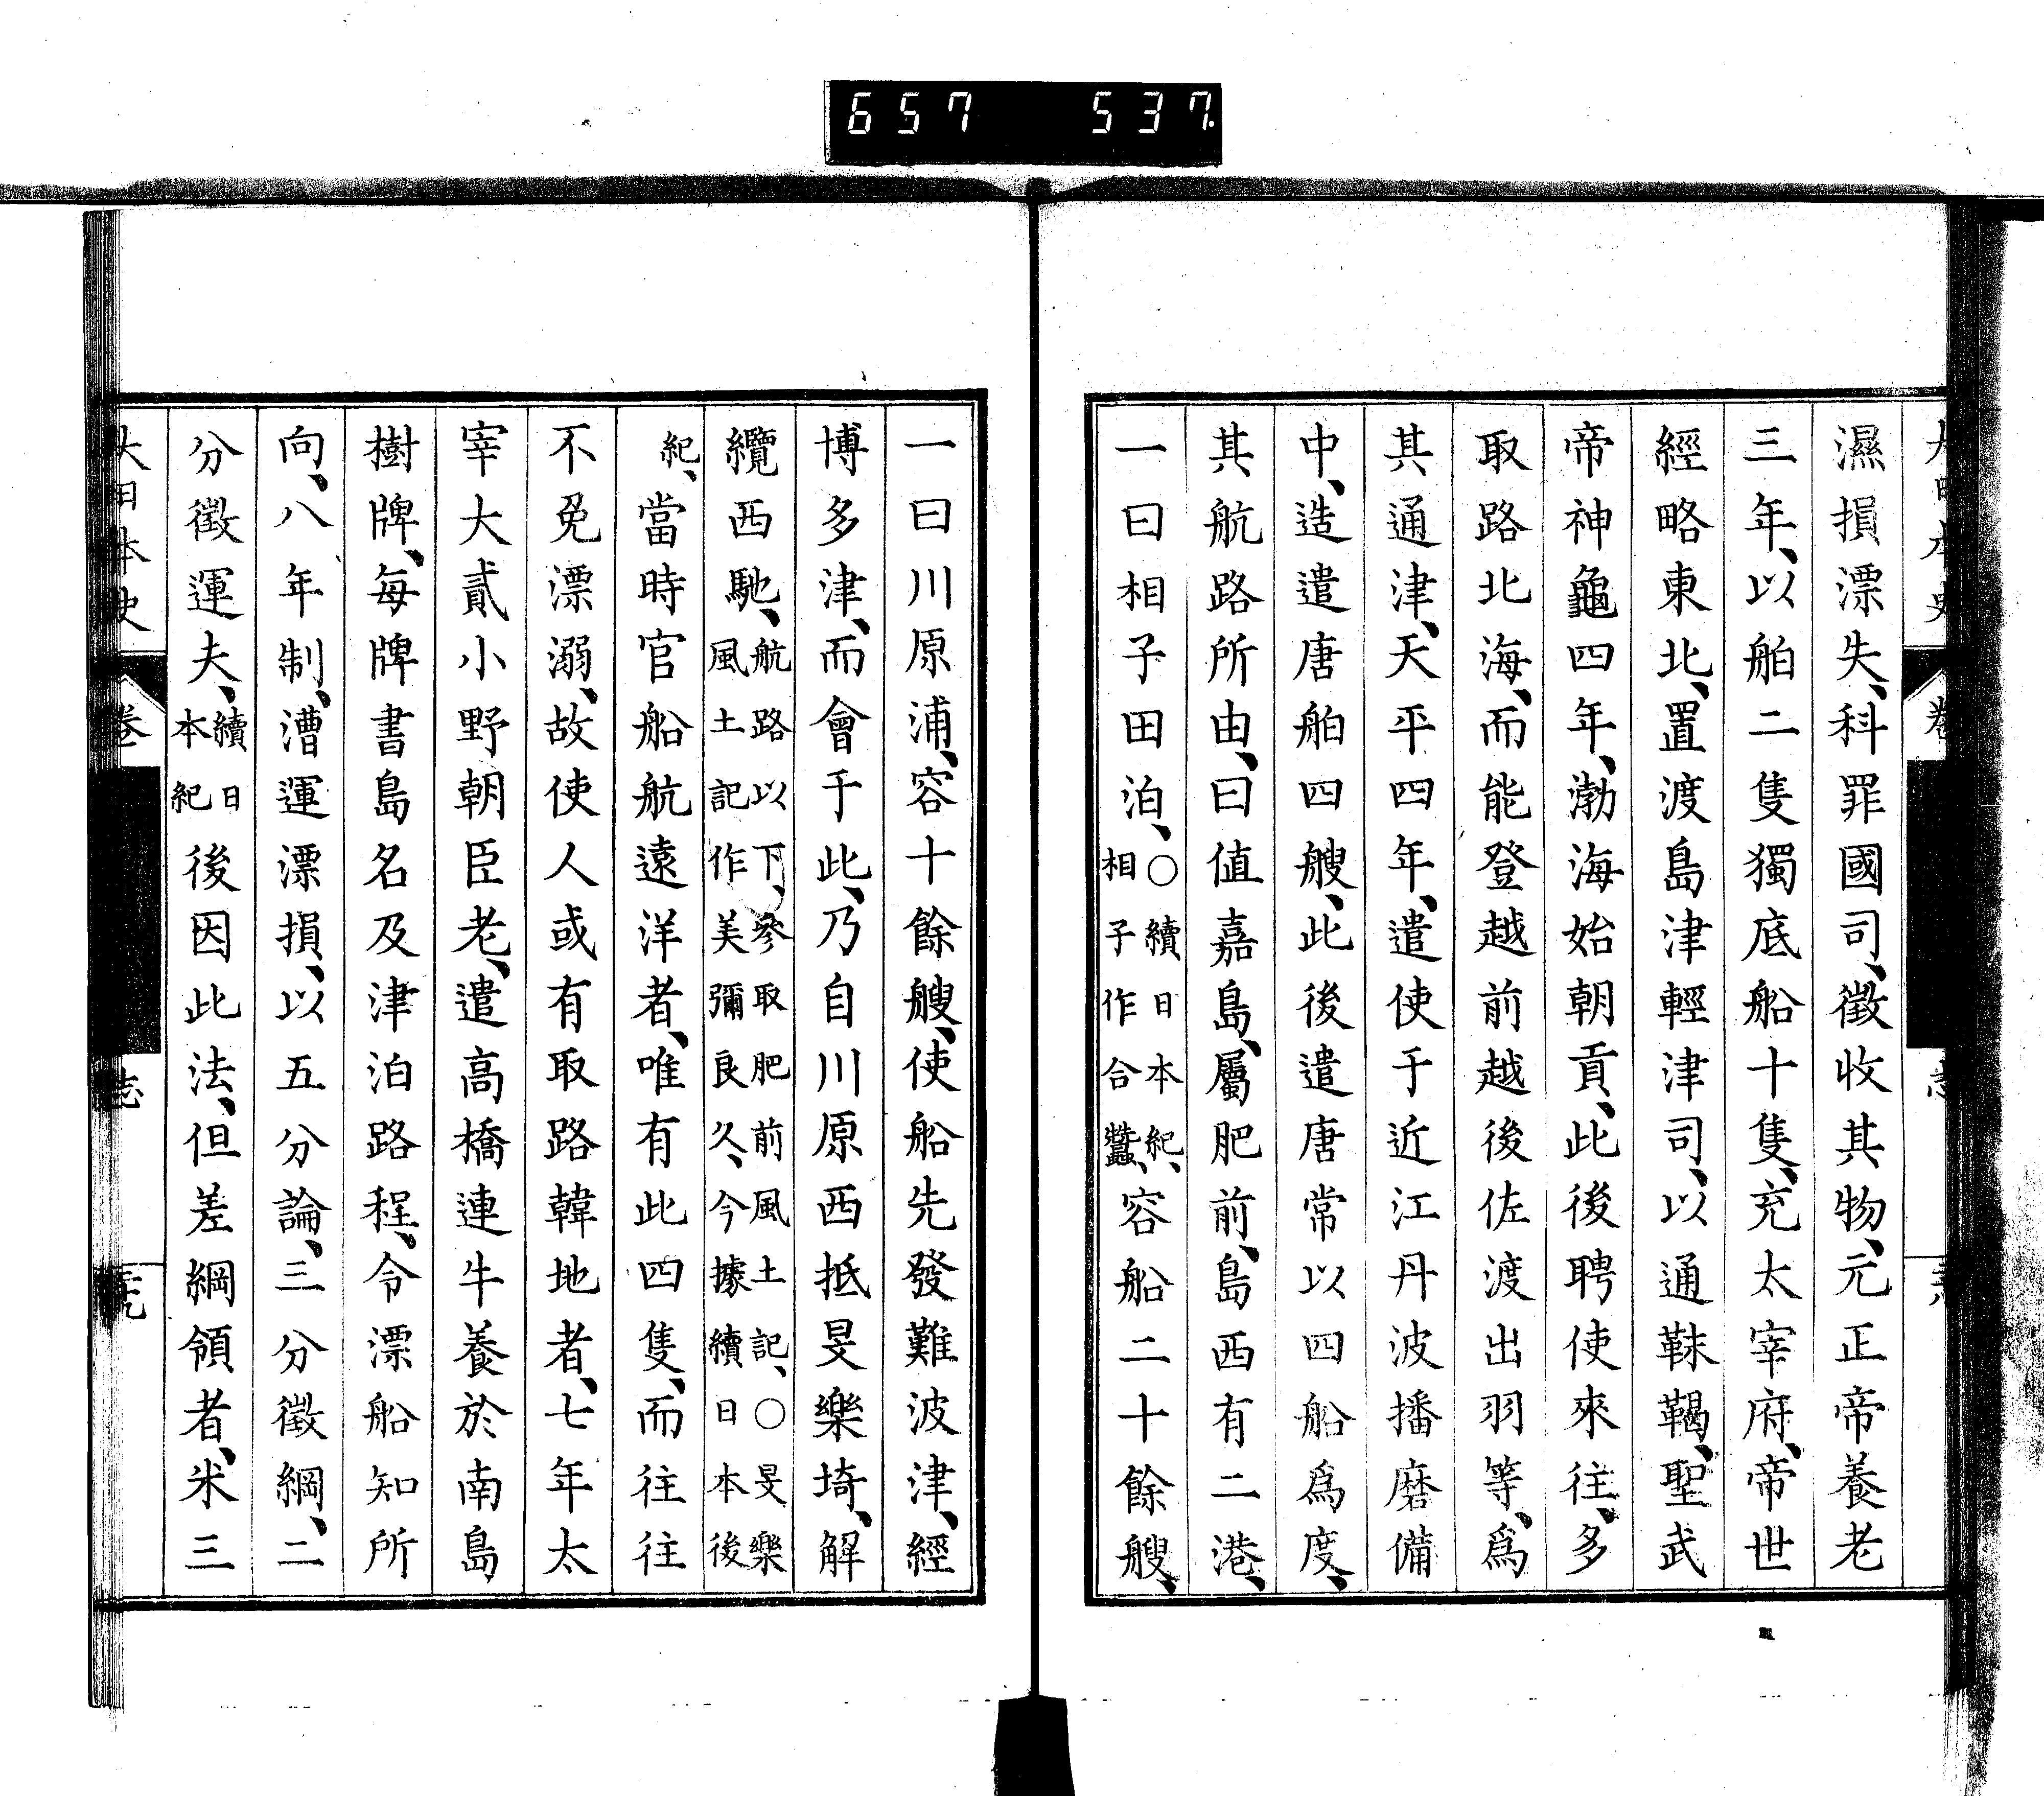 657 537
濕損漂失、科罪國司、徵收其物、元正帝養老
三年、以舶二隻獨底船十隻、充太宰府、帝世
經略東北、置渡島津輕津司、以通靺鞨、聖武
帝神龜四年、渤海始朝貢、此後聘使來往、多
取路北海、而能登越前越後佐渡出羽等、爲
其通津、天平四年、遣使于近江丹波播磨備
中、造遣唐舶四艘、此後遣唐常以四船爲度、
其航路所由、曰値嘉島、屬肥前、島西有二港、
一曰相子田泊、〇續日本紀、相子作合蠶、容船二十餘艘、
一曰川原浦、容十餘艘、使船先發難波津、經
博多津、而會于此、乃自川原西抵旻樂埼、解
纜西馳、航路以下、參取肥前風土記、〇旻樂風土記作美彌良久、今據續日本後
紀、當時官船航遠洋者、唯有此四隻、而往往
不免漂溺、故使人或有取路韓地者、七年太
宰大貳小野朝臣老、遣高橋連牛養於南島
樹牌、每牌書島名及津泊路程、令漂船知所
向、八年制、漕運漂損、以五分論、三分徵綱、二
分徵運夫、續日本紀後因此法、但差綱領者、米三
大日本史 卷 志